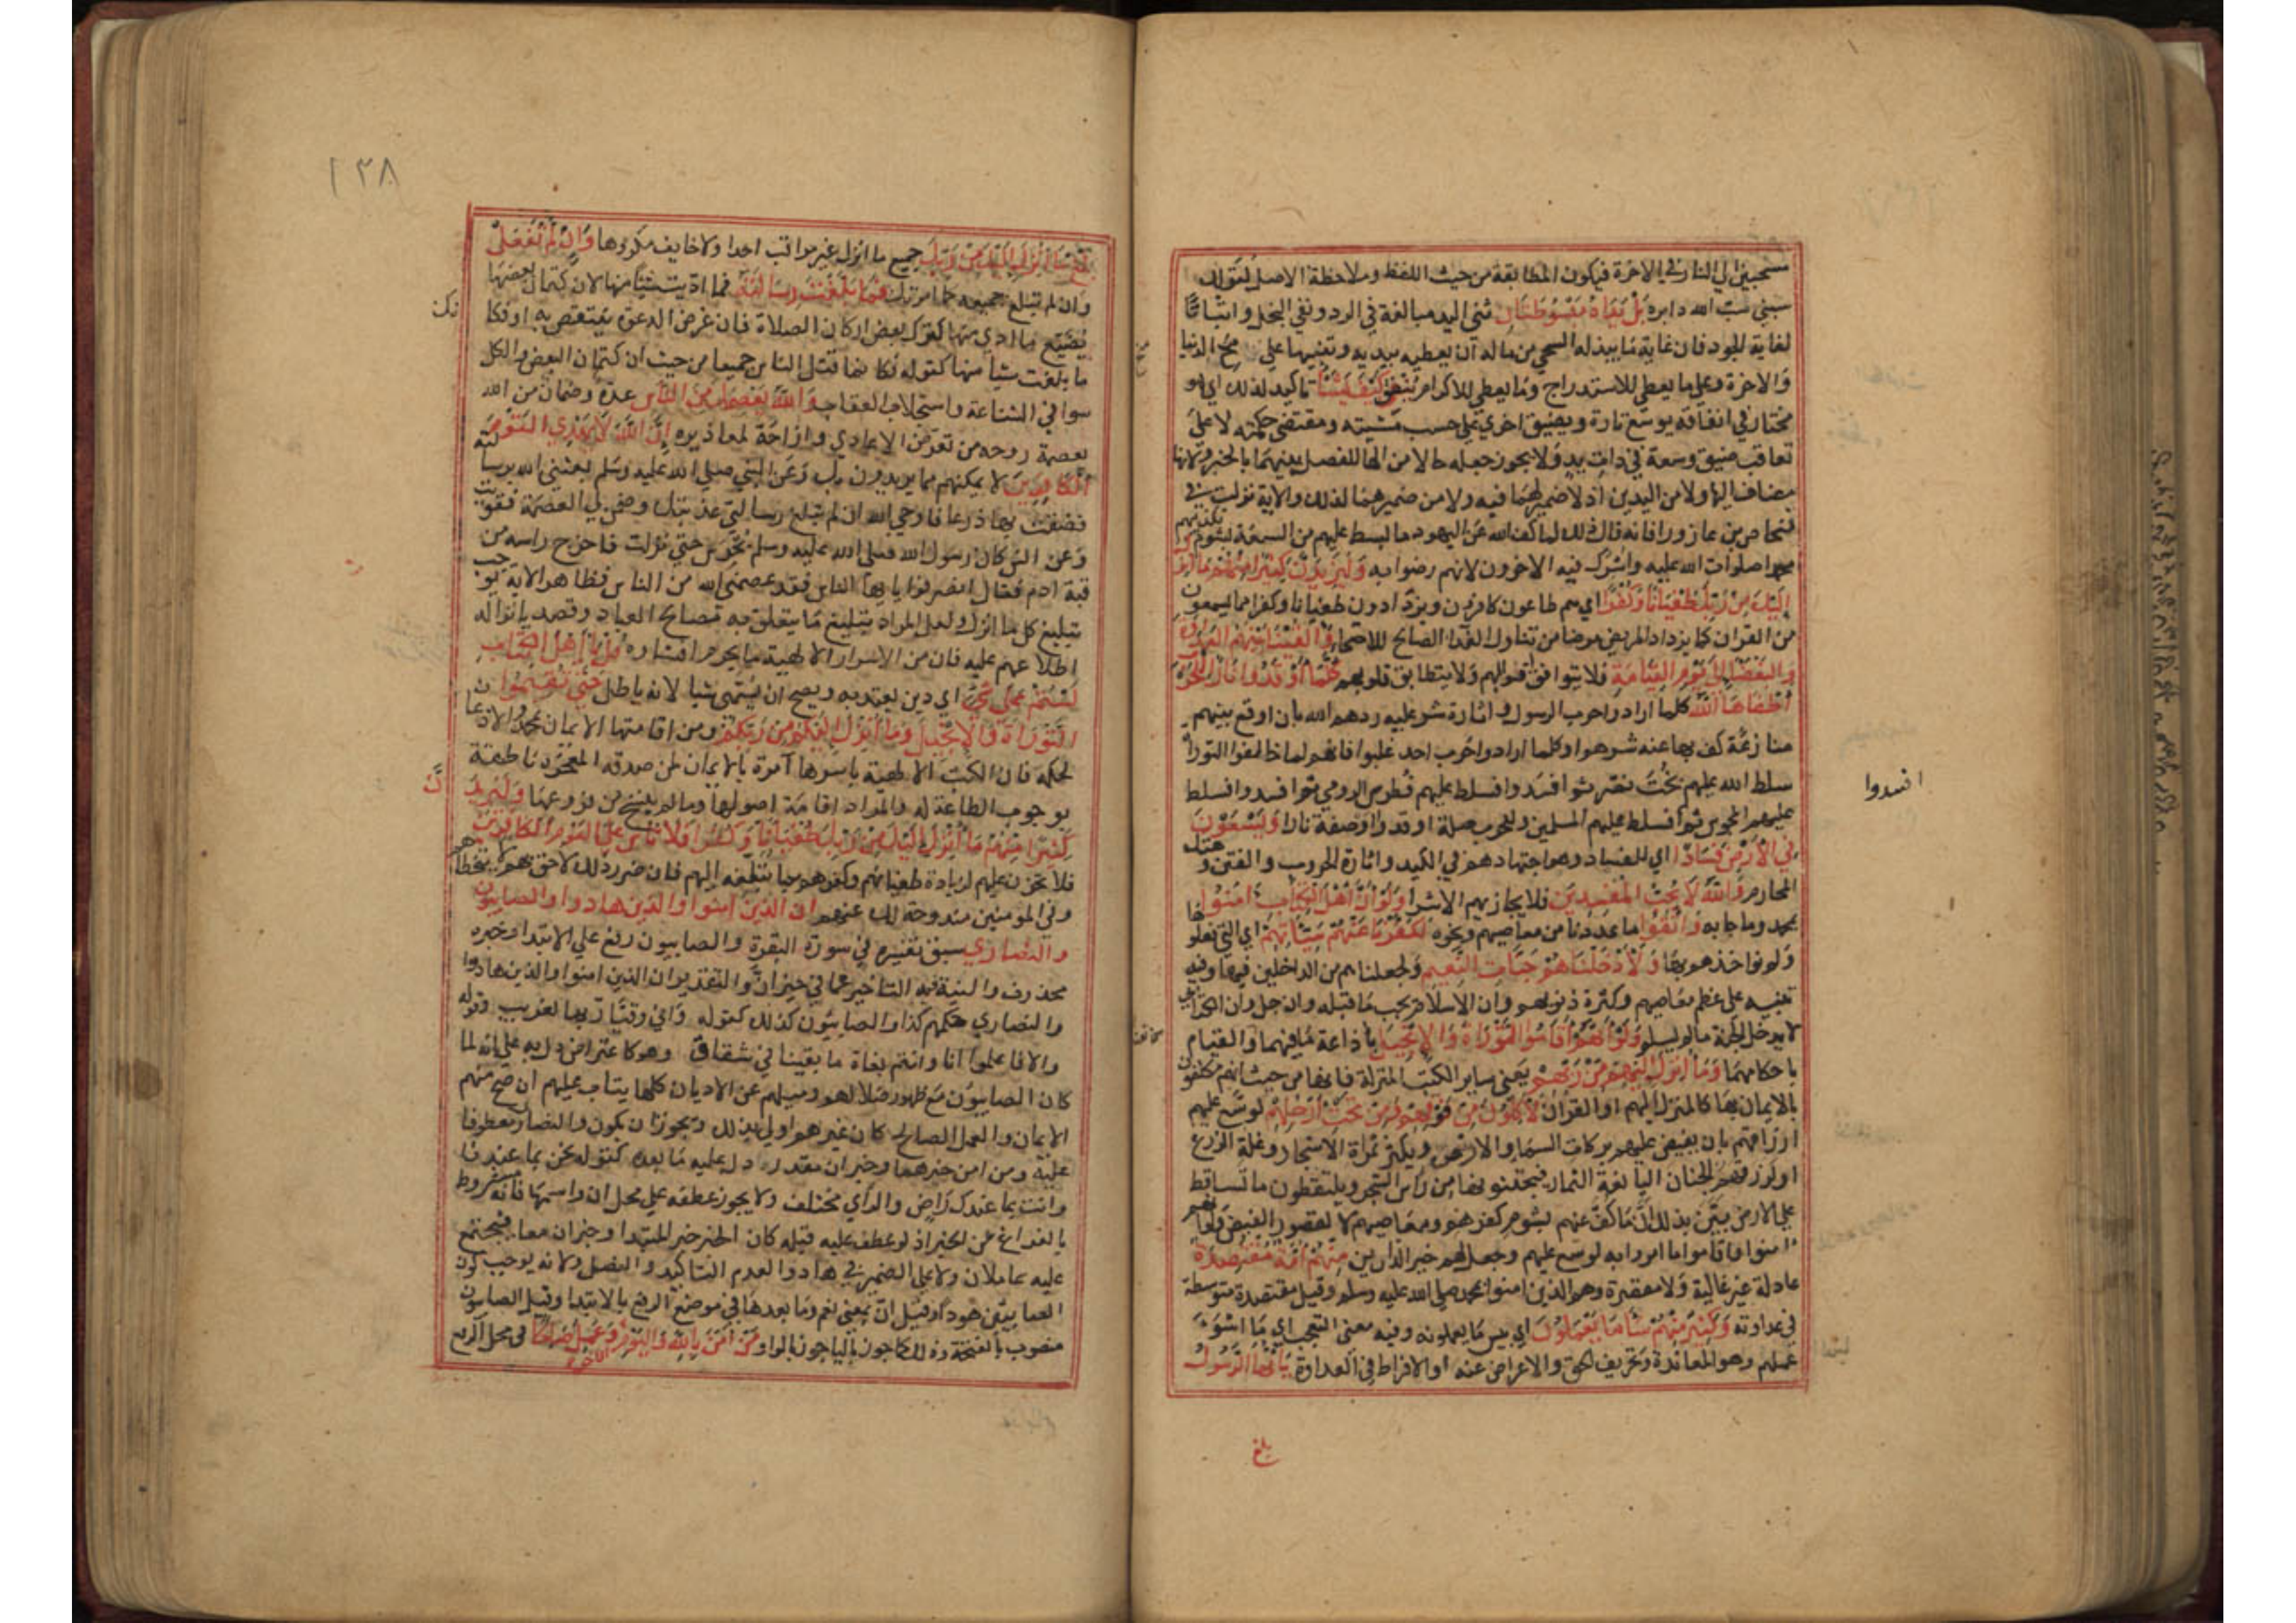 مسحبين الى النار في الاخرة فيكون المطابقة من حيث اللفظ وملاحظة الاصل كقولك
سبني سب الله دابره بَلْ يَدَاهُ مَبْسُوطَتَانِ ثنى اليد مبالغة في الرد ونفي البخل واثباتا
لغاية الجود فان غاية ما يبذله السخي من ماله ان يعطيه بيديه وتنبيها على منح الدنيا
والاخرة وعلى ما يعطي للاستدراج وما يعطي للاكرام يُنفِقُ كَيْفَ يَشَاءُ تاكيد لذلك اي هو
مختار في انفاقه يوسع تارة ويضيق اخرى على حسب مشيته ومقتضى حكمته لا على
تعاقب ضيق وسعة في ذات يد ولا يجوز جعله حالا من الها للفصل بينهما بالخبر ولانها
مضاف اليها ولا من اليدين اذ لا ضمير لهما فيه ولا من ضميرهما لذلك والاية نزلت في
فنحاص بن عازورا فانه قال ذلك لما كف الله عن اليهود ما بسط عليهم من السعة لشوم تكذيبهم
محمدا صلوات الله عليه واشرك فيه الاخرون لانهم رضوا به وَلَيَزِيدَنَّ كَثِيرًا مِنْهُمْ مَا أُنْزِلَ
إِلَيْكَ مِنْ رَبِّكَ طُغْيَانًا وَكُفْرًا اي هم طاعون كافرون ويزدادون طغيانا وكفرا مما يسمعون
من القران كما يزداد المريض مرضا من تناول الغذا الصالح للاصحا وَأَلْقَيْنَا بَيْنَهُمُ الْعَدَاوَةَ
وَالْبَغْضَا إِلَى يَوْمِ الْقِيَامَةِ فلا يتوافق قولهم ولا يتطابق قلوبهم كُلَّمَا أَوْقَدُوا نَارًا لِلْحَرْبِ
أَطْفَأَهَا اللَّهُ كلما ارادوا حرب الرسول واثارة شر عليه ردهم الله بان اوقع بينهم
منازعة كف بها عنه شرهم او كلما ارادوا حرب احد غلبوا فانهم لما خالفوا التوراة
سلط الله عليهم بخت نصر ثم افسدوا فسلط عليهم فطرس الرومي ثم افسدوا فسلط
عليهم المجوس ثم افسدوا فسلط عليهم المسلمين وللحرب صلة اوقدوا او صفة نارا وَيَسْعَوْنَ
فِي الْأَرْضِ فَسَادًا اي للفساد وهو اجتهادهم في الكيد واثارة الحروب والفتن وهتك
المحارم وَاللَّهُ لَا يُحِبُّ الْمُفْسِدِينَ فلا يجازيهم الا شرا وَلَوْ أَنَّ أَهْلَ الْكِتَابِ آمَنُوا
بمحمد وما جا به وَاتَّقَوْا ما عددنا من معاصيهم ونحوه لَكَفَّرْنَا عَنْهُمْ سَيِّئَاتِهِمْ اي التي فعلوها
ولم نواخذهم بها وَلَأَدْخَلْنَاهُمْ جَنَّاتِ النَّعِيمِ ولجعلناهم من الداخلين فيها وفيه
تنبيه على عظم معاصيهم وكثرة ذنوبهم وان الاسلام يجب ما قبله وان جل وان الكتابي
لا يدخل الجنة ما لم يسلم وَلَوْ أَنَّهُمْ أَقَامُوا التَّوْرَاةَ وَالْإِنْجِيلَ باذاعة ما فيهما والقيام
باحكامهما وَمَا أُنْزِلَ إِلَيْهِمْ مِنْ رَبِّهِمْ يعني ساير الكتب المنزلة فانها من حيث انهم مكلفون
بالايمان بها كالمنزل اليهم او القران لَأَكَلُوا مِنْ فَوْقِهِمْ وَمِنْ تَحْتِ أَرْجُلِهِمْ لوسع عليهم
ارزاقهم بان يفيض عليهم بركات السما والارض ويكثر ثمرة الاشجار وغلة الزرع
او يرزقهم الجنان اليانعة الثمار فيجتنونها من راس الشجر ويلتقطون ما تساقط
على الارض بين بذلك ان ما كف عنهم بشوم كفرهم ومعاصيهم لا لقصور الفيض ولو انهم
امنوا واقاموا ما امروا به لوسع عليهم وجعل لهم خير الدارين مِنْهُمْ أُمَّةٌ مُقْتَصِدَةٌ
عادلة غير غالية ولا مقصرة وهم الذين امنوا بمحمد صلى الله عليه وسلم وقيل مقتصدة متوسطة
في عداوته وَكَثِيرٌ مِنْهُمْ سَاءَ مَا يَعْمَلُونَ اي بيس ما يعملونه وفيه معنى التعجب اي ما اسوء
عملهم وهو المعاندة وتحريف الحق والاعراض عنه او الافراط في العداوة يَا أَيُّهَا الرَّسُولُ
افسدوا
بلغ
١٣٨
بَلِّغْ مَا أُنْزِلَ إِلَيْكَ مِنْ رَبِّكَ جميع ما انزل غير مراقب احدا ولا خايف مكروها وَإِنْ لَمْ تَفْعَلْ
وان لم تبلغ جميعه كما امرتك فَمَا بَلَّغْتَ رِسَالَتَهُ فما اديت شيئا منها لان كتمان بعضها
يضيع ما ادي منها كترك بعض اركان الصلاة فان غرض الدعوة ينتقض به او فكانك
ما بلغت شيأ منها كقوله فكانما قتل الناس جميعا من حيث ان كتمان البعض والكل
سوا في الشناعة واستجلاب العقاب وَاللَّهُ يَعْصِمُكَ مِنَ النَّاسِ عدة وضمان من الله
بعصمة روحه من تعرض الاعادي وازاحة لمعاذيره إِنَّ اللَّهَ لَا يَهْدِي الْقَوْمَ
الْكَافِرِينَ لا يمكنهم مما يريدون بك وعن النبي صلى الله عليه وسلم بعثني الله برسالته
فضقت بها ذرعا فاوحى الله ان لم تبلغ رسالتي عذبتك وضمن لي العصمة فقويت
وعن انس كان رسول الله صلى الله عليه وسلم يحرس حتى نزلت فاخرج راسه من
قبة ادم فقال انصرفوا يا ايها الناس فقد عصمني الله من الناس فظاهر الاية يوجب
تبليغ كل ما انزل ولعل المراد تبليغ ما يتعلق به مصالح العباد وقصد بانزاله
اطلاعهم عليه فان من الاسرار الالهية ما يحرم افشاره قُلْ يَا أَهْلَ الْكِتَابِ
لَسْتُمْ عَلَى شَيْءٍ اي دين يعتد به ويصح ان يسمى شيا لانه باطل حَتَّى تُقِيمُوا
التَّوْرَاةَ وَالْإِنْجِيلَ وَمَا أُنْزِلَ إِلَيْكُمْ مِنْ رَبِّكُمْ ومن اقامتها الايمان بمحمد والاذعان
لحكمه فان الكتب الالهية باسرها آمرة بالايمان لمن صدقه المعجزة ناطقة
بوجوب الطاعة له والمراد اقامة اصولها وما لم ينسخ من فروعها وَلَيَزِيدَنَّ
كَثِيرًا مِنْهُمْ مَا أُنْزِلَ إِلَيْكَ مِنْ رَبِّكَ طُغْيَانًا وَكُفْرًا فَلَا تَأْسَ عَلَى الْقَوْمِ الْكَافِرِينَ
فلا تحزن عليهم لزيادة طغيانهم وكفرهم بما تبلغه اليهم فان ضرر ذلك لاحق بهم لا يتخطاهم
وفي المومنين مندوحة لك عنهم ان الذين امنوا والذين هادوا والصابيون
والنصارى سبق تفسيره في سورة البقرة والصابيون رفع على الابتدا وخبره
محذوف والنية فيه التاخير عما في حيز ان والتقدير ان الذين امنوا والذين هادوا
والنصارى حكمهم كذا والصابيون كذلك كقوله واني وقيار بها لغريب وقوله
والا فاعلموا انا وانتم بغاة ما بقينا في شقاق وهو كاعتراض دل به على انه لما
كان الصابيون مع ظهور ضلالهم وميلهم عن الاديان كلها يتاب عليهم ان صح منهم
الايمان والعمل الصالح كان غيرهم اولى بذلك ويجوز ان يكون والنصارى معطوفا
عليه ومن امن خبرهما وخبر ان مقدر دل عليه ما بعده كقوله نحن بما عندنا
وانت بما عندك راض والراي مختلف ولا يجوز عطفه على محل ان واسمها فانه مشروط
بالفراغ من الخبر اذ لو عطف عليه قبله كان الخبر خبر المبتدا وخبر ان معا فيجتمع
عليه عاملان ولا على الضمير في هادوا لعدم التاكيد والفصل ولانه يوجب كون
الصابيين هودا وقيل ان بمعنى نعم وما بعدها في موضع الرفع بالابتدا وقيل الصابيون
منصوب بالفتحة وذلك كما جوز بالياجوز بالواو مَنْ آمَنَ بِاللَّهِ وَالْيَوْمِ الْآخِرِ وَعَمِلَ صَالِحًا في محل الرفع